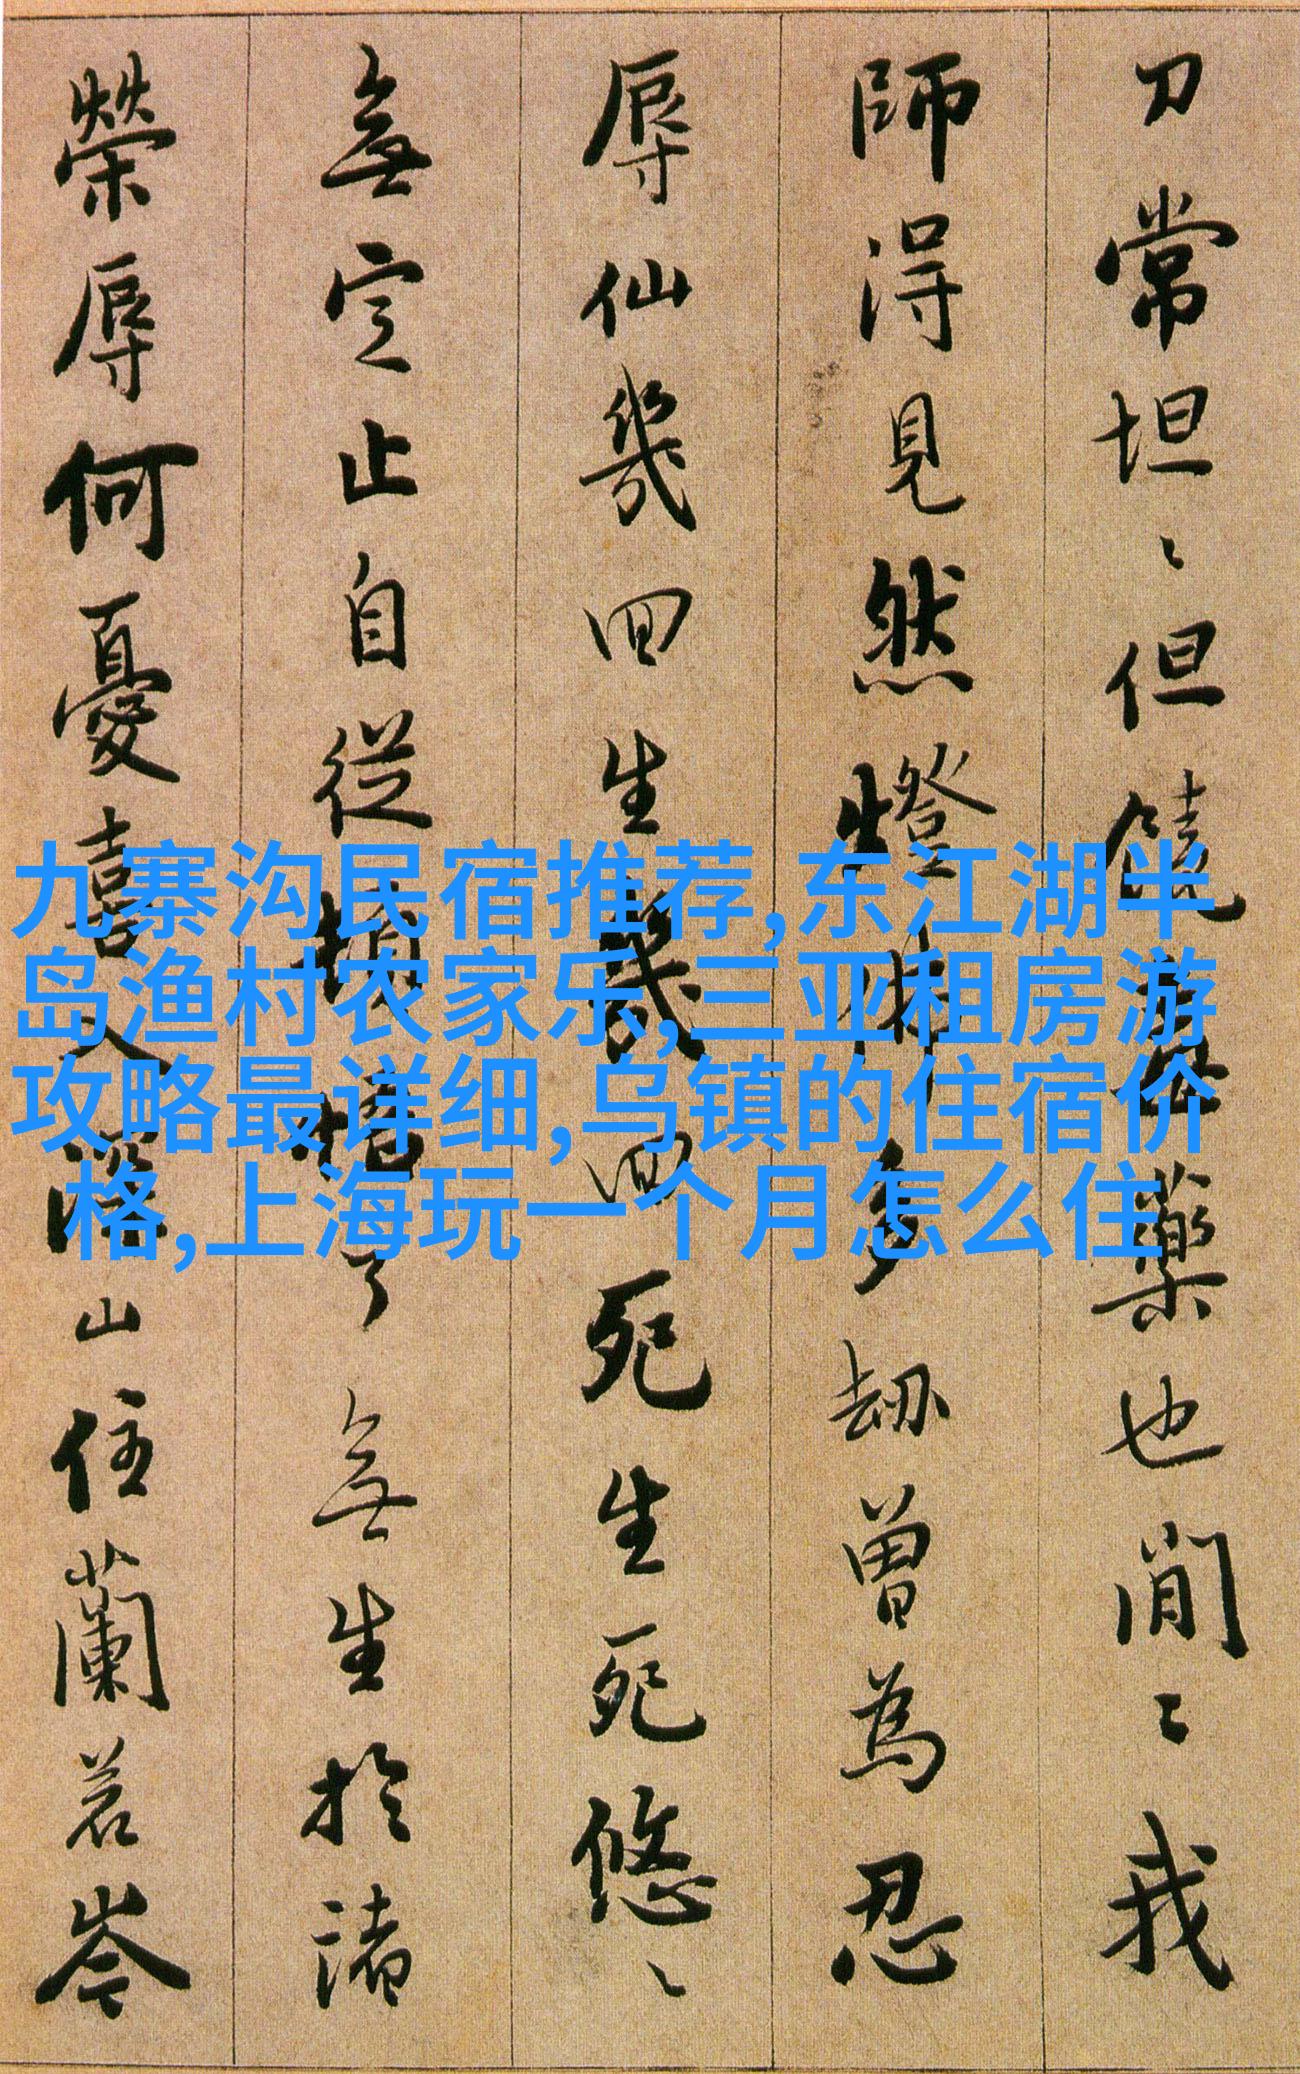 刀常坦〻但饒毒藥也閒〻我
師得見然燈佛多劫曾為忍
辱仙幾回生幾回死生死悠〻
無定止自從頓悟了無生於諸
榮辱何憂喜入深山住蘭若岑
九寨沟民宿推荐,东江湖半
岛渔村农家乐,三亚租房游
攻略最详细,乌镇的住宿价
格,上海玩一个月怎么住